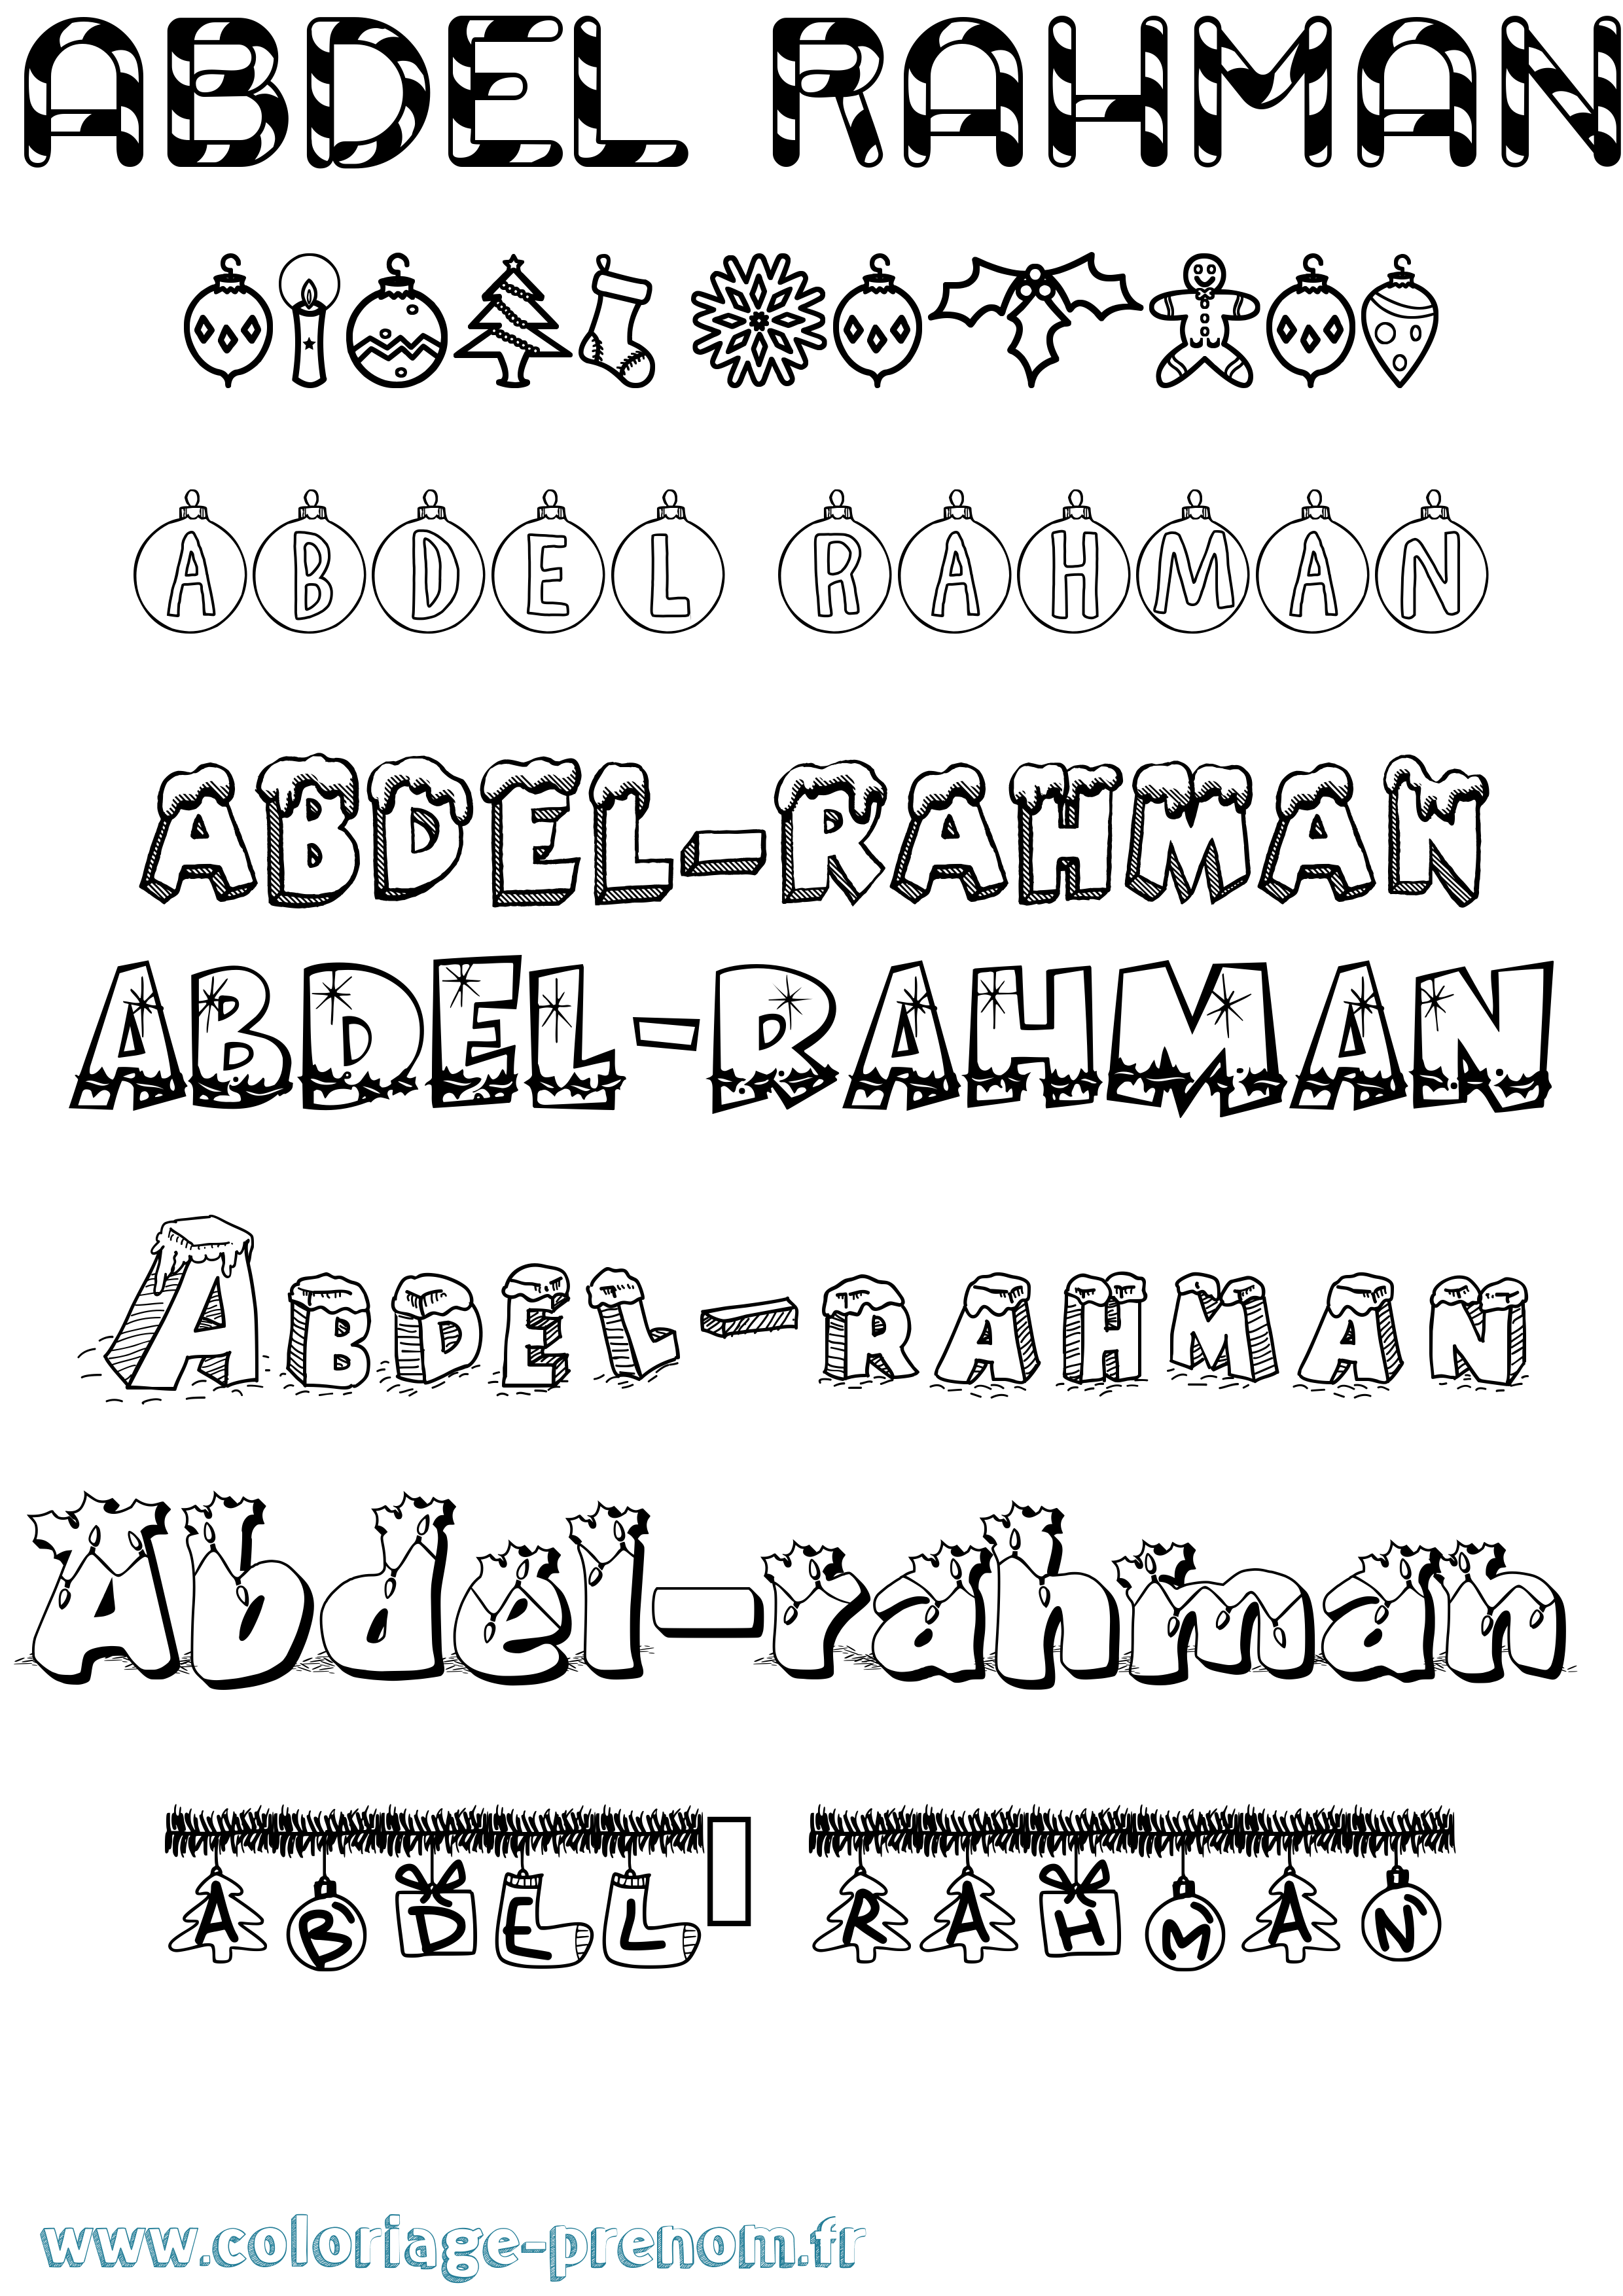 ABDEL RAHMAN
ABDEL RAHMAN
ABDEL-RAHMAN
ABDEL-RAHMAN
ABDEL-RAHMAN
Abdel-rahman
ABDEL RAHMAN
www.coloriage-prenom.fr